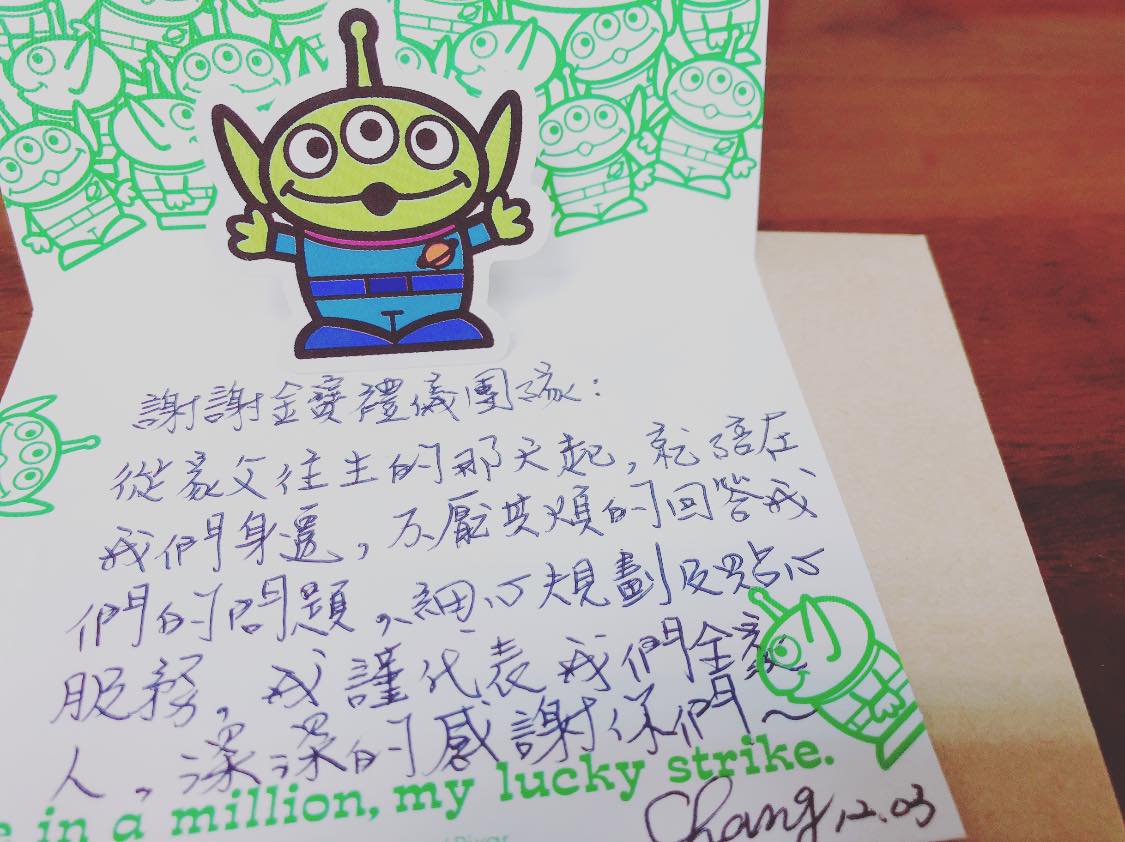 謝謝金寶禮儀團隊：
從家父往生的那天起，就陪在
我們身邊，不厭其煩的回答我
們的問題，細心規劃及貼心
服務，我謹代表我們全家
人，深深的感謝你們～
in a million, my lucky strike.
Chang 12.03